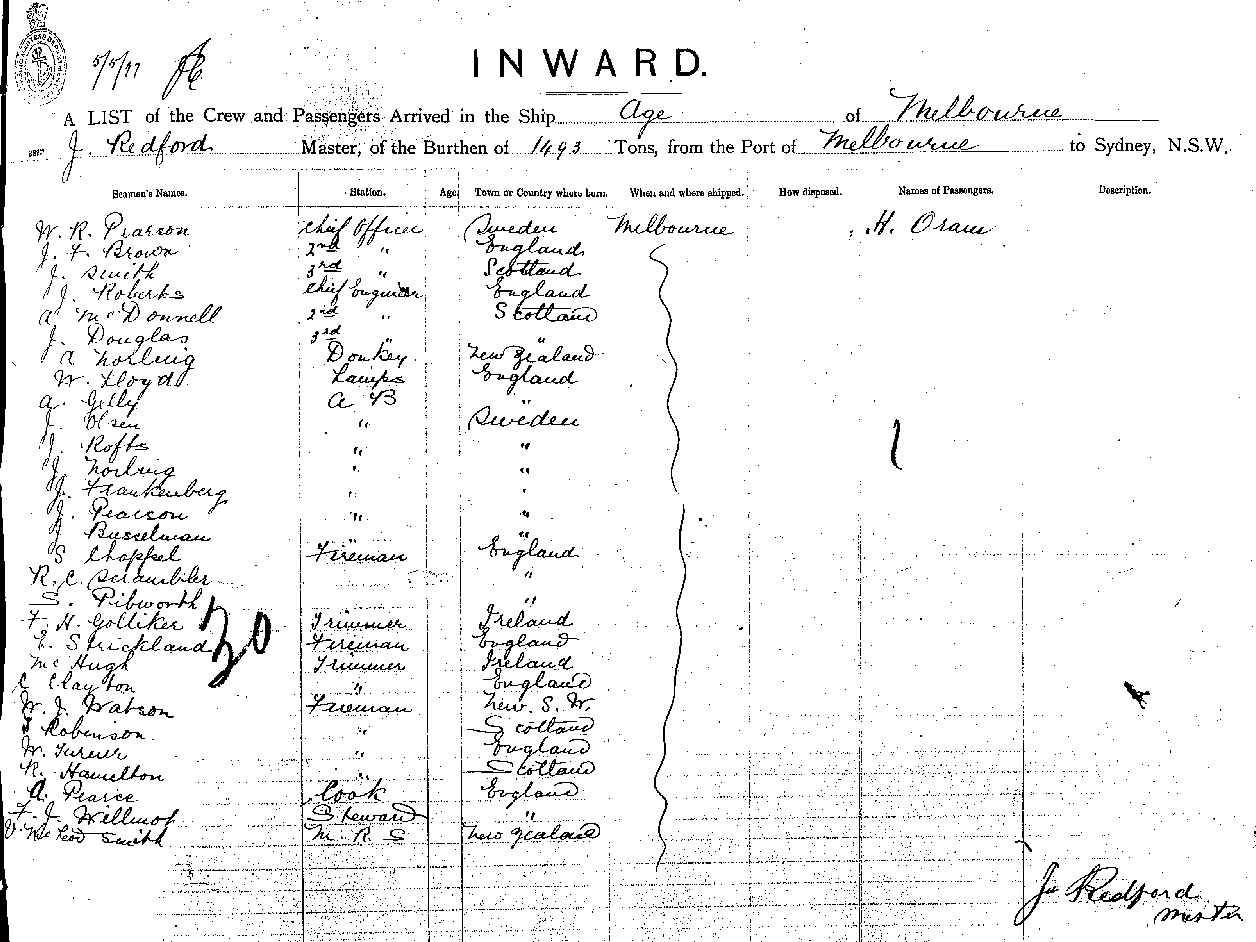 5/5/97
INWARD.
A LIST of the Crew and Passengers Arrived in the Ship Age of Melbourne
J. Redford Master, of the Burthen of 1493 Tons, from the Port of Melbourne to Sydney, N.S.W.
Seamen's Names. Station. Age Town or Country where born. When and where shipped. How disposed. Names of Passengers. Description.
W. R. Pearson Chief Officer Sweden Melbourne H. Oram
J. F. Brown 2nd " England
J. Smith 3rd " Scotland
J. Roberts Chief Engineer England
A. McDonnell 2nd " Scotland
J. Douglas 3rd " "
A Norling Donkey New Zealand
W. Lloyd Lamps England
A. Gelly A B "
J. Olsen " Sweden
J. Rofts " "
J. Norling " "
J. Frankenberg " "
J. Pearson " "
J Busselman "
S Chappel Fireman England
R. C. Scrambler "
S. Pibworth "
F. H. Golliker Trimmer Ireland
E. Strickland Fireman England
30
McHugh Trimmer Ireland
C Clayton " England
W. J. Watson Fireman New. S. W.
Robinson " Scotland
W. Turner " England
R. Hamilton " Scotland
A. Pearce Cook England
F. J. Willmot Steward "
Smith M. R. S New Zealand
Jn Redford
Master